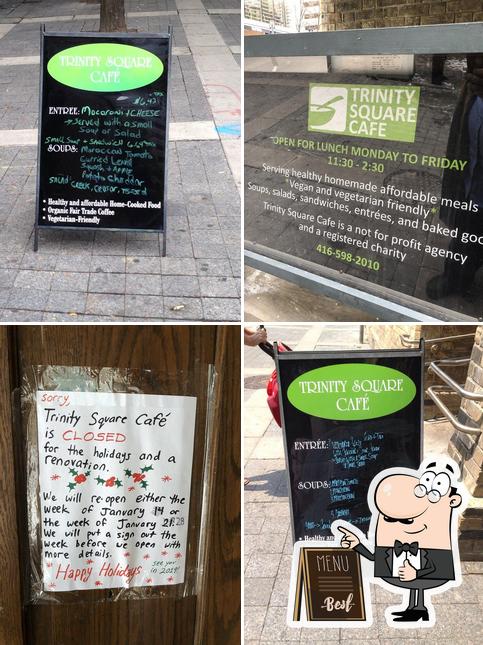 TRINITY SQUARE
CAFÉ
+TAX
ENTREE: Macaroni + CHEESE
→ Served with a small
Soup or Salad
Small Soup + Sandwich
SOUPS: Moroccan Tomato
Curried Lentil
Squash + Apple
Potato Cheddar
• Healthy and affordable Home-Cooked Food
• Organic Fair Trade Coffee
• Vegetarian-Friendly
TRINITY
SQUARE
CAFE
OPEN FOR LUNCH MONDAY TO FRIDAY
11:30 - 2:30
Serving healthy homemade affordable meals
*Vegan and vegetarian friendly*
Soups, salads, sandwiches, entrées, and baked goo
Trinity Square Cafe is a not for profit agency
and a registered charity
416-598-2010
sorry,
Trinity Square Café
is CLOSED
for the holidays and a
renovation.
We will re-open either the
week of January 14 or
the week of January 21.
We will put a sign out the
week before we open with
more details.
Happy Holidays
see you
in 2019!
TRINITY SQUARE
CAFÉ
ENTRÉE:
SOUPS:
• Healthy an
MENU
Best